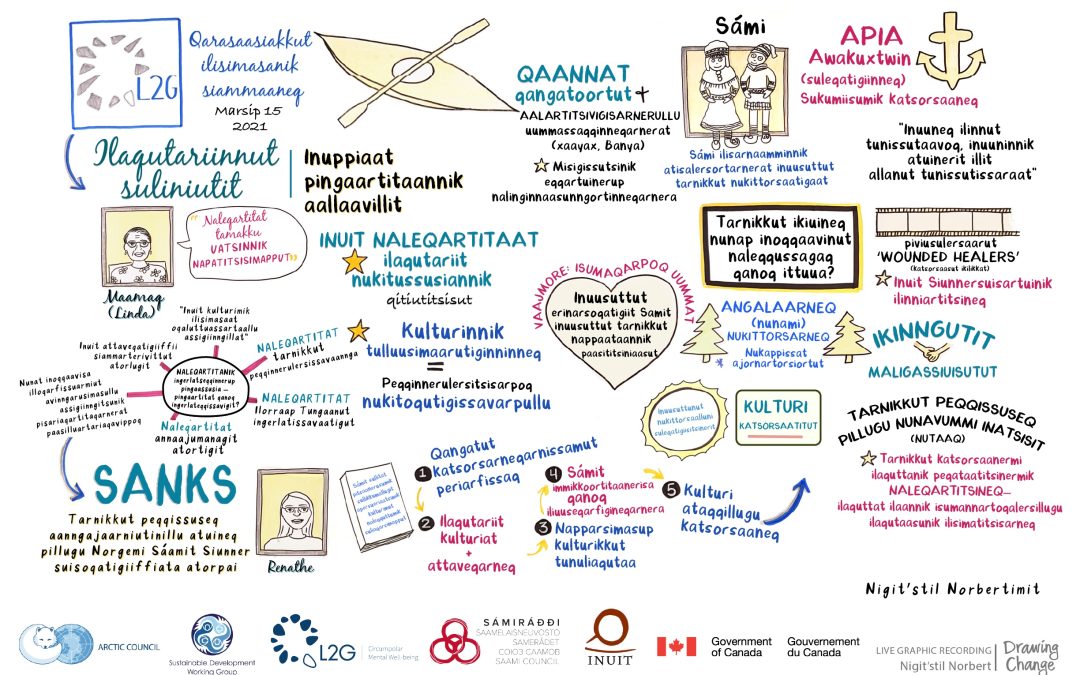 L2G
Qarasaasiakkut
ilisimasanik
siammaaneq
Marsip 15
2021
Ilaqutariinnut
suliniutit
Inuppiaat
pingaartitaannik
aallaavillit
QAANNAT
qangatoortut +
AALARTITSIVIGISARNERULLU
uummassaqqinneqarnerat
(xaayax, Banya)
Misigissutsinik
eqqartuinerup
nalinginnaasunngortinneqarnera
Sámi
Sámi ilisarnaamminnik
atisalersortarnerat inuusuttut
tarnikkut nukittorsaatigaat
APIA
Awakuxtwin
(suleqatigiinneq)
Sukumiisumik Katsorsaaneq
"Inuuneq ilinnut
tunissutaavoq, inuuninnik
atuinerit illit
allanut tunissutissaraat"
Maamaq
(Linda)
"Naleqartitat
tamakku
UATSINNIK
NAPATITSISIMAPPUT"
INUIT NALEQARTITAAT
ilaqutariit
nukitussusiannik
qitiutitsisut
VAAJMORE: ISUMAQARPOQ UUMMAT
Inuusuttut
erinarsoqatigiit Samit
inuusuttut tarnikkut
nappaataannik
paasititsiniaasut
Tarnikkut ikiuineq
nunap inoqqaavinut
naleqqussagaq
qanoq ittuua?
piviusulersaarut
'WOUNDED HEALERS'
(katsorsaasut ikilikkat)
Inuit Siunnersuisartuinik
ilinniartitsineq
ANGALAARNEQ
(nunami)
NUKITTORSARNEQ
Nukappissat
ajornartorsiortut
IKINNGUTIT
MALIGASSIUISUTUT
"Inuit kulturimik
ilisimasaat
oqaluttuassartaallu
assigiinngillat"
Inuit attaveqatigiiffii
siammarterivittut
atorlugit
Nunat inoqqaavisa
illoqarfissuarmiut
avinngarusimasullu
assigiinngitsunik
pisariaqartitaqarnerat
paasilluartariaqavippoq
NALEQARTITANIK
ingerlatseqqinnerup
pingaassusia –
pingaartitat qanoq
ingerlateqqissavigit?
NALEQARTITAT
tarnikkut
peqqinnerulersissavaannga
NALEQARTITAT
Ilorraap Tungaanut
ingerlatissavaatigut
Naleqartitat
annaajumanagit
atortigit
Kulturinnik
tulluusimaarutiginninneq
=
Peqqinnerulersitsisarpoq
nukitoqutigissavarpullu
Inuusuttunut
nukittorsaalluni
suleqatigiissitsinerit
KULTURI
KATSORSAATITUT
TARNIKKUT PEQQISSUSEQ
PILLUGU NUNAVUMMI INATSISIT
(NUTAAQ)
Tarnikkut katsorsaanermi
ilaquttanik peqataatitsinermik
NALEQARTITSINEQ—
ilaquttat ilaannik isumannartoqalersillugu
ilaqutaasunik ilisimatitsisarneq
SANKS
Tarnikkut peqqissuseq
aanngajaarniutinillu atuineq
pillugu Norgemi Sáamit Siunner
suisoqatigiiffiata atorpai
Renathe
1 Qangatut
katsorsarneqarnissamut
periarfissaq
2 Ilaqutariit
kulturiat
+
attaveqarneq
3 Napparsimasup
kulturikkut
tunuliaqutaa
4 Sámit
immikkoortitaanerisa
qanoq
iliuuseqarfigineqarnera
5 Kulturi
ataqqillugu
katsorsaaneq
Nigit'stil Norbertimit
ARCTIC COUNCIL
Sustainable Development
Working Group
L2G
Circumpolar
Mental Well-being
SÁMIRÁĐĐI
SÄÄMELAISNEUVOSTO
SAMERÅDET
СОЮЗ СААМОВ
SAAMI COUNCIL
INUIT
Government
of Canada
Gouvernement
du Canada
LIVE GRAPHIC RECORDING
Nigit'stil Norbert
Drawing
Change